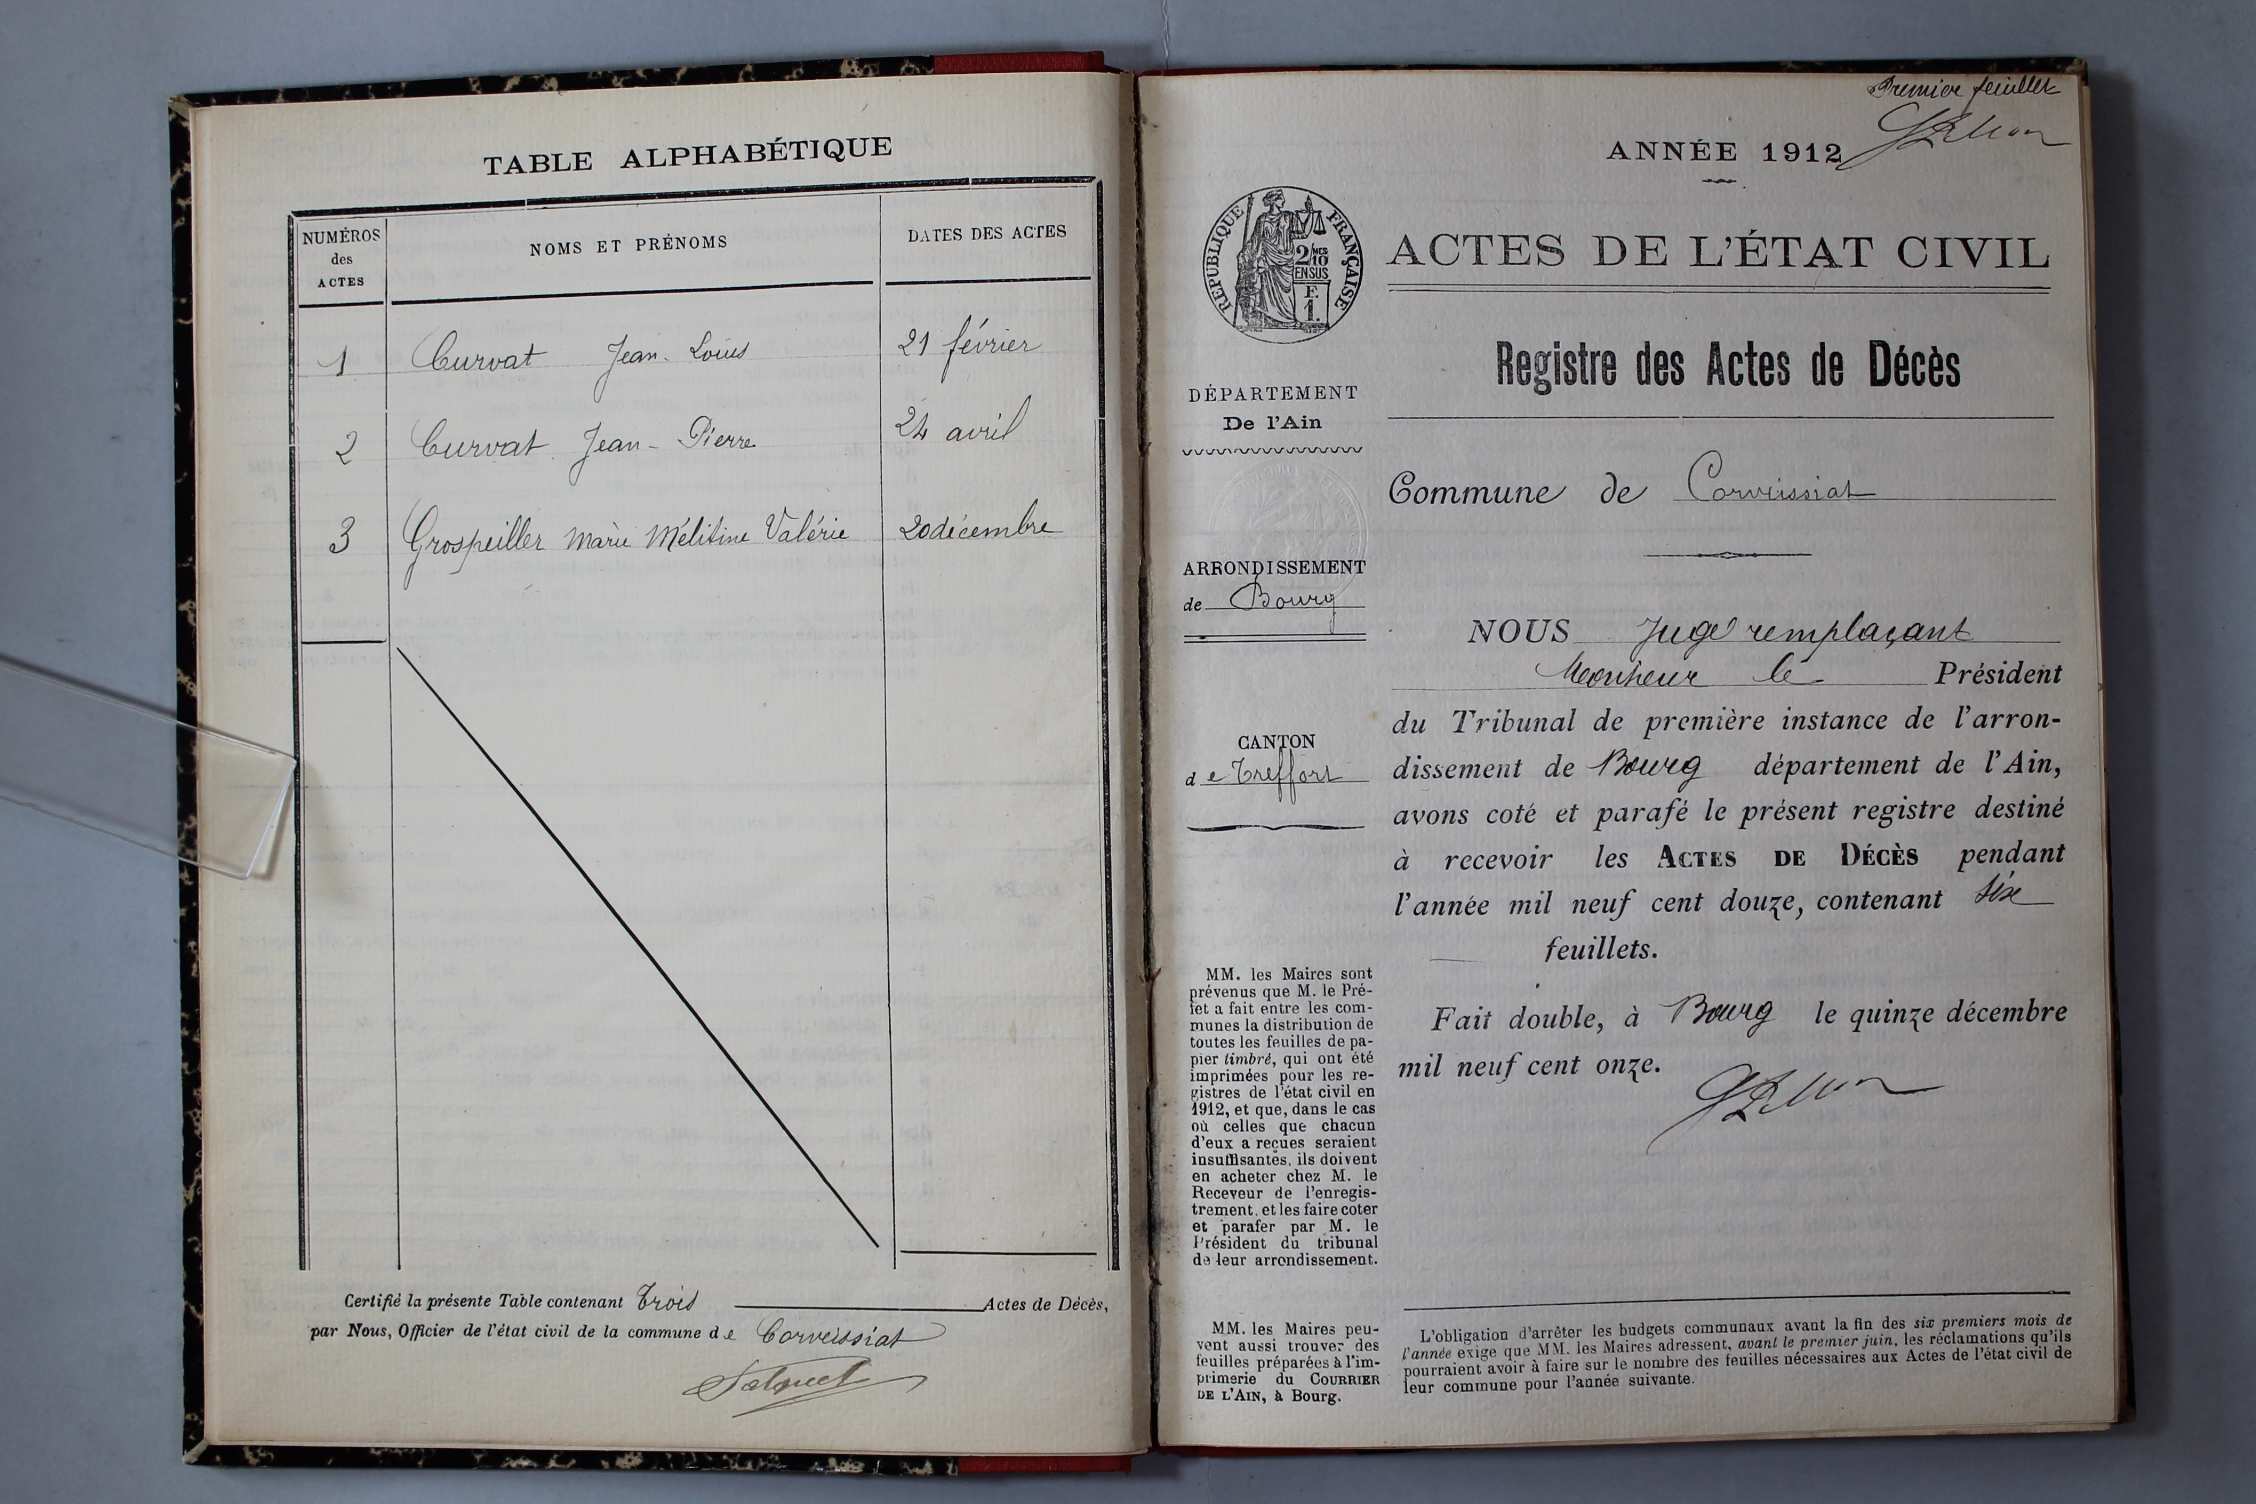 TABLE ALPHABÉTIQUE
NUMÉROS
des
ACTES
NOMS ET PRÉNOMS
DATES DES ACTES
1 Curvat Jean-Louis 21 février
2 Curvat Jean-Pierre 24 avril
3 Grospeiller Marie Mélitine Valérie 20 décembre
Certifié la présente Table contenant Trois Actes de Décès,
par Nous, Officier de l'état civil de la commune de Corveissiat
Premier feuillet
ANNÉE 1912
RÉPUBLIQUE FRANÇAISE
2/10 MES
EN SUS
F.
1.
ACTES DE L'ÉTAT CIVIL
Registre des Actes de Décès
DÉPARTEMENT
De l'Ain
Commune de Corveissiat
ARRONDISSEMENT
de Bourg
CANTON
de Treffort
NOUS Juge remplaçant
Monsieur le Président
du Tribunal de première instance de l'arron-
dissement de Bourg département de l'Ain,
avons coté et parafé le présent registre destiné
à recevoir les ACTES DE DÉCÈS pendant
l'année mil neuf cent douze, contenant six
feuillets.
Fait double, à Bourg le quinze décembre
mil neuf cent onze.
MM. les Maires sont
prévenus que M. le Pré-
fet a fait entre les com-
munes la distribution de
toutes les feuilles de pa-
pier timbré, qui ont été
imprimées pour les re-
gistres de l'état civil en
1912, et que, dans le cas
où celles que chacun
d'eux a reçues seraient
insuffisantes, ils doivent
en acheter chez M. le
Receveur de l'enregis-
trement, et les faire coter
et parafer par M. le
Président du tribunal
de leur arrondissement.
MM. les Maires peu-
vent aussi trouver des
feuilles préparées à l'im-
primerie du COURRIER
DE L'AIN, à Bourg.
L'obligation d'arrêter les budgets communaux avant la fin des six premiers mois de
l'année exige que MM. les Maires adressent, avant le premier juin, les réclamations qu'ils
pourraient avoir à faire sur le nombre des feuilles nécessaires aux Actes de l'état civil de
leur commune pour l'année suivante.